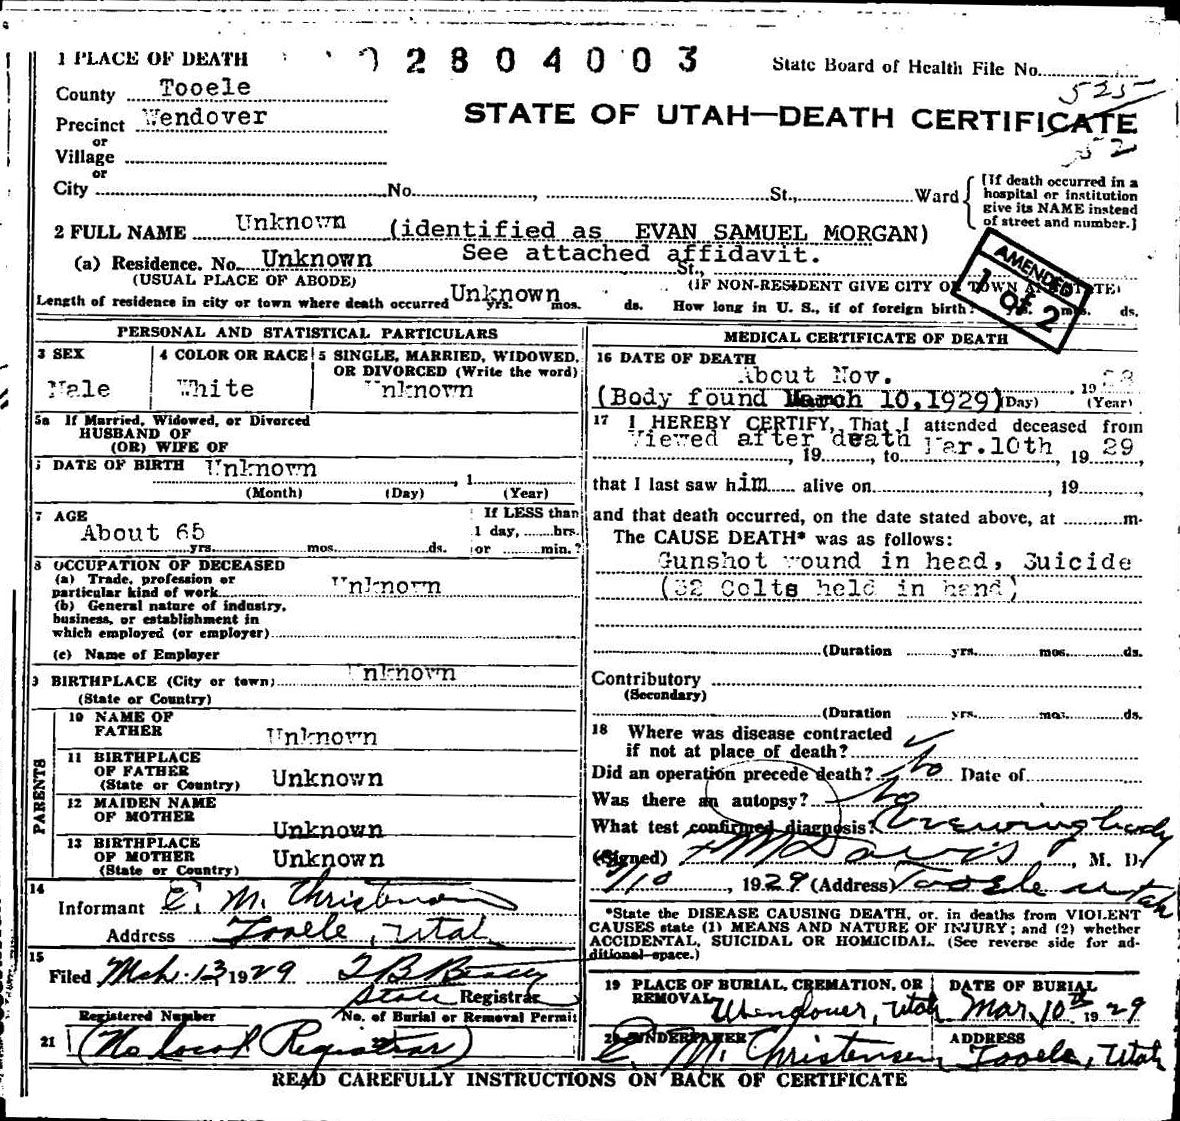 1 PLACE OF DEATH
2804003
State Board of Health File No.
County Tooele
525
Precinct Wendover
STATE OF UTAH—DEATH CERTIFICATE
or
Village
52
or
City No. , St., Ward
[If death occurred in a hospital or institution give its NAME instead of street and number.]
2 FULL NAME Unknown (identified as EVAN SAMUEL MORGAN)
(a) Residence. No. Unknown See attached affidavit. St.,
(USUAL PLACE OF ABODE) (IF NON-RESIDENT GIVE CITY OR TOWN AND STATE)
AMENDED
1 of 2
Length of residence in city or town where death occurred Unknown yrs. mos. ds. How long in U. S., if of foreign birth? yrs. mos. ds.
PERSONAL AND STATISTICAL PARTICULARS
3 SEX
Male
4 COLOR OR RACE
White
5 SINGLE, MARRIED, WIDOWED,
OR DIVORCED (Write the word)
Unknown
5a If Married, Widowed, or Divorced
HUSBAND OF
(OR) WIFE OF
DATE OF BIRTH Unknown , 1
(Month) (Day) (Year)
7 AGE
About 65
yrs. mos. ds.
If LESS than
1 day, hrs.
or min.?
8 OCCUPATION OF DECEASED
(a) Trade, profession or
particular kind of work Unknown
(b) General nature of industry,
business, or establishment in
which employed (or employer)
(c) Name of Employer
9 BIRTHPLACE (City or town) Unknown
(State or Country)
PARENTS
10 NAME OF
FATHER Unknown
11 BIRTHPLACE
OF FATHER
(State or Country) Unknown
12 MAIDEN NAME
OF MOTHER Unknown
13 BIRTHPLACE
OF MOTHER
(State or Country) Unknown
14
Informant E. M. Christensen
Address Tooele, Utah
15
Filed Mch. 13 1929 T B Beatty
State Registrar
Registered Number No. of Burial or Removal Permit
21 (No local Registrar)
MEDICAL CERTIFICATE OF DEATH
16 DATE OF DEATH
About Nov. , 1928
(Body found March 10, 1929) (Day) (Year)
17 I HEREBY CERTIFY, That I attended deceased from
Viewed after death Mar. 10th
, 19 , to , 19 29 ,
that I last saw him alive on , 19 ,
and that death occurred, on the date stated above, at m.
The CAUSE DEATH* was as follows:
Gunshot wound in head, Suicide
(32 Colts held in hand)
(Duration yrs. mos. ds.
Contributory
(Secondary)
(Duration yrs. mos. ds.
18 Where was disease contracted
if not at place of death?
Did an operation precede death? No Date of
Was there an autopsy? No
What test confirmed diagnosis? Viewing body
(Signed) M Davis , M. D.
3/10 , 1929 (Address) Tooele Utah
*State the DISEASE CAUSING DEATH, or, in deaths from VIOLENT
CAUSES state (1) MEANS AND NATURE OF INJURY; and (2) whether
ACCIDENTAL, SUICIDAL OR HOMICIDAL. (See reverse side for ad-
ditional space.)
19 PLACE OF BURIAL, CREMATION, OR
REMOVAL Wendover, Utah
DATE OF BURIAL
Mar. 10th 1929
20 UNDERTAKER
E. M. Christensen
ADDRESS
Tooele, Utah
READ CAREFULLY INSTRUCTIONS ON BACK OF CERTIFICATE